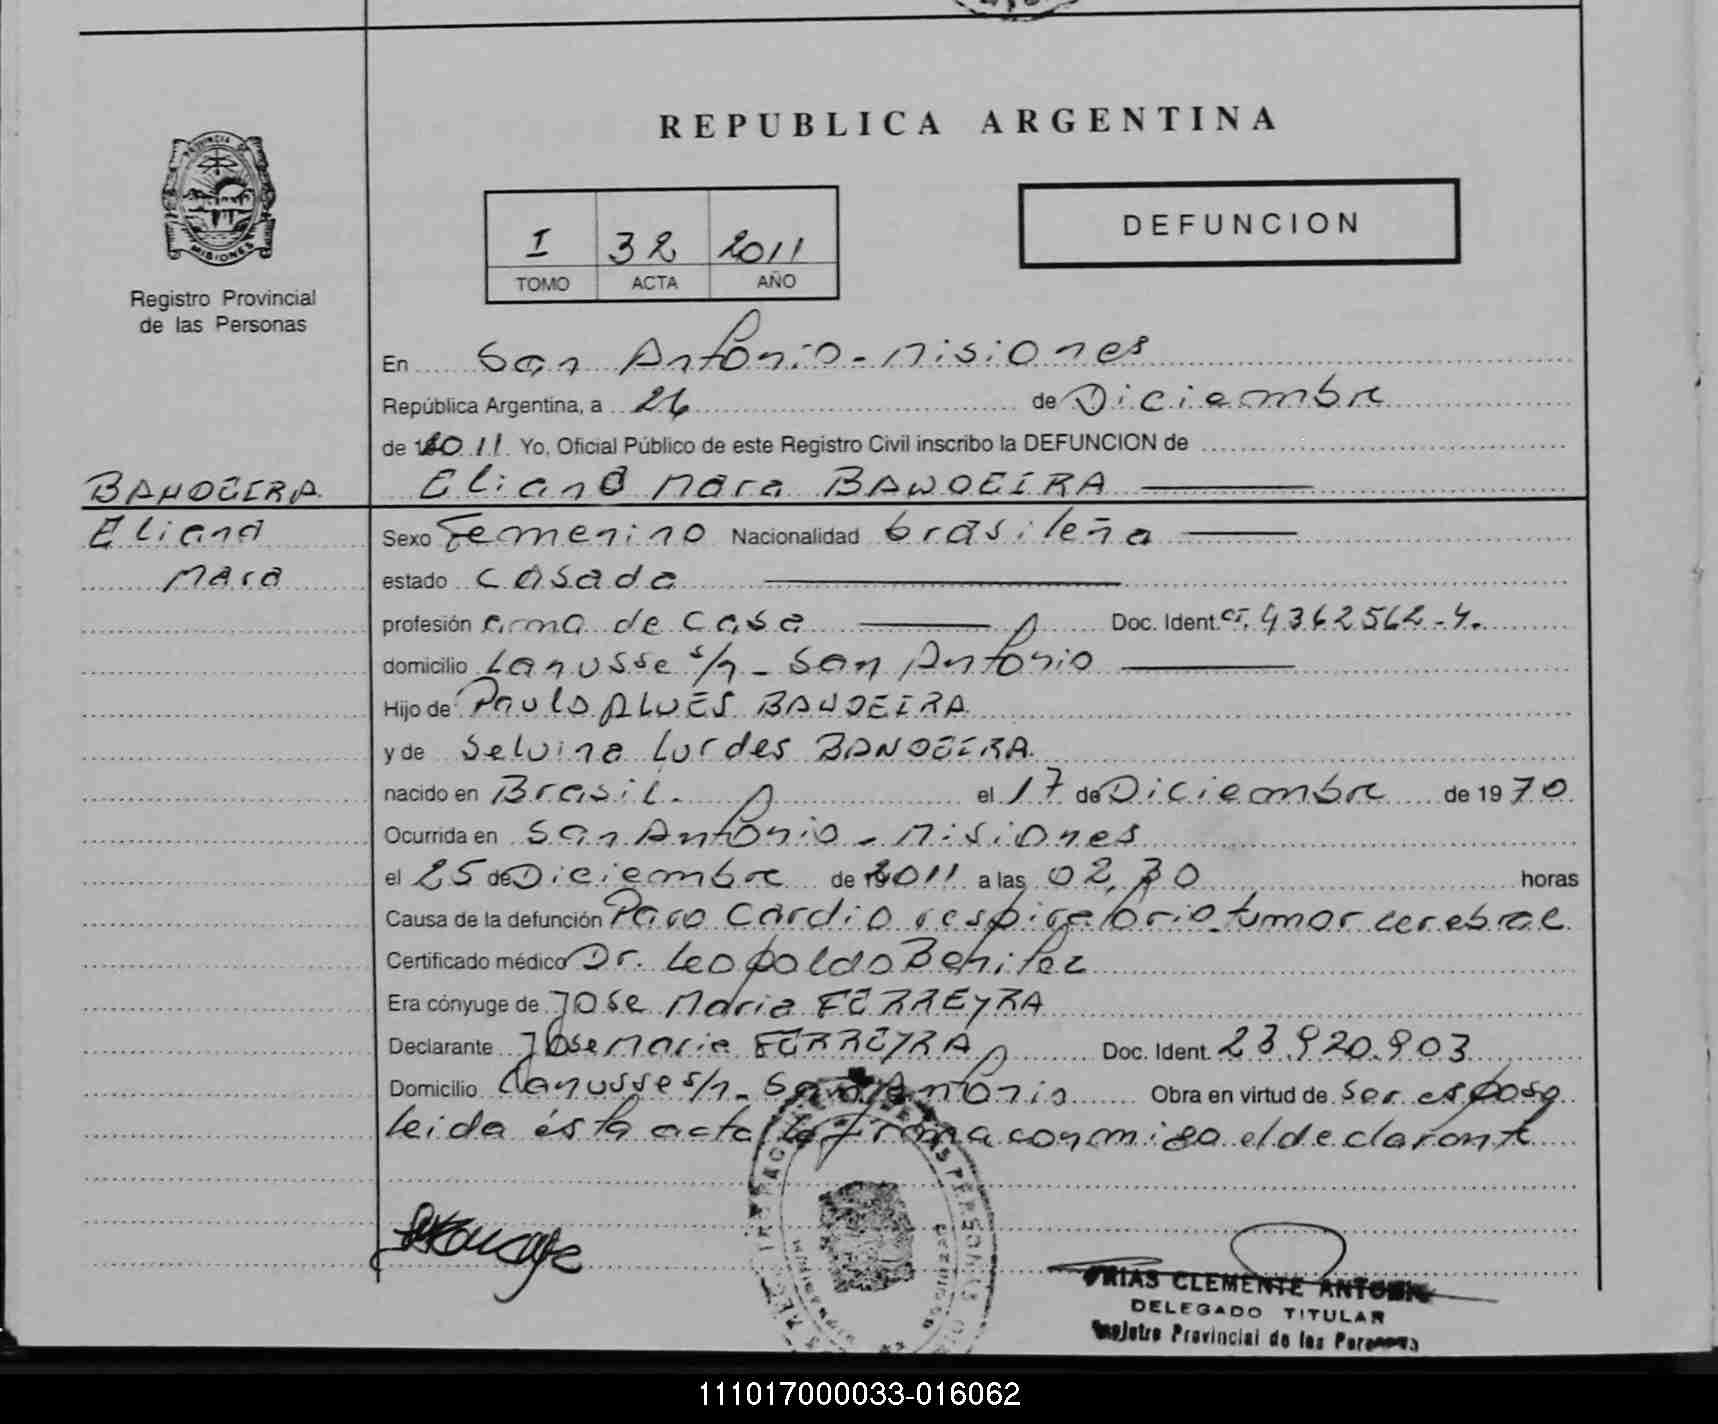 REPUBLICA ARGENTINA
PROVINCIA DE
MISIONES
Registro Provincial
de las Personas
I 32 2011
TOMO ACTA AÑO
DEFUNCION
En San Antonio - Misiones
República Argentina, a 26 de Diciembre
de 2011 Yo, Oficial Público de este Registro Civil inscribo la DEFUNCION de
BANDEIRA
Eliana Mara BANDEIRA
Eliana
Mara
Sexo Femenino Nacionalidad brasileña
estado casada
profesión ama de casa Doc. Ident. CI. 4362562-4.
domicilio Lanusse s/n - San Antonio
Hijo de Paulo ALVES BANDEIRA
y de Selvina Lurdes BANDEIRA
nacido en Brasil. el 17 de Diciembre de 1970
Ocurrida en San Antonio - Misiones
el 25 de Diciembre de 2011 a las 02,30 horas
Causa de la defunción Paro Cardio respiratorio tumor cerebral
Certificado médico Dr. Leopoldo Benitez
Era cónyuge de Jose Maria FERREYRA
Declarante Jose Maria FERREYRA Doc. Ident. 23.920.903
Domicilio Lanusse s/n - San Antonio Obra en virtud de ser esposo
leida ésta acta la firma conmigo el declarante
CLEMENTE
DELEGADO TITULAR
Registro Provincial de las Personas
111017000033-016062